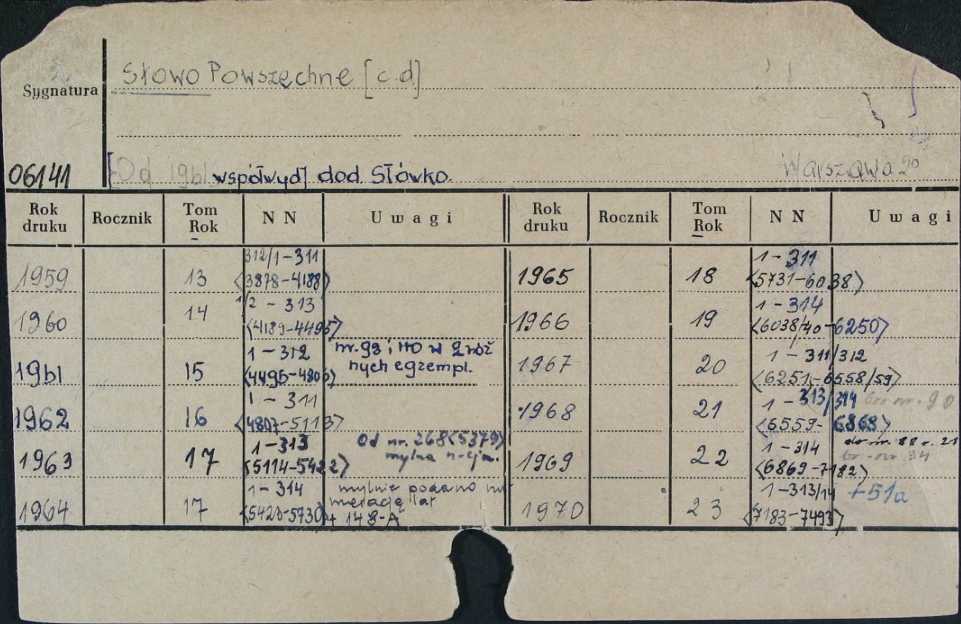 Słowo Powszechne [c.d]
Sygnatura
06141 [Od 1961 współwyd] dod. Słówko. Warszawa 20
Rok druku Rocznik Tom Rok NN Uwagi Rok druku Rocznik Tom Rok NN Uwagi
1959 13 312/1-311 <3878-4188> 1965 18 1-311 <5731-6038>
1960 14 1/2-313 <4189-4495> 1966 19 1-314 <6038/40-6250>
1961 15 1-312 <4496-4806> nr. 98 i 110 w 2 róż nych egzempl. 1967 20 1-311/312 <6251-6558/59>
1962 16 1-311 <4807-5113> 1968 21 1-313/314 <6559-6868> br nr. 90
1963 17 1-313 <5114-5422> Od nr. 268<5379> mylna n-cja. 1969 22 1-314 <6869-7182>
1964 17 1-314 <5423-5730> mylnie podano nu merację lat + 148-A 1970 23 1-313/14 <7183-7493> +51a